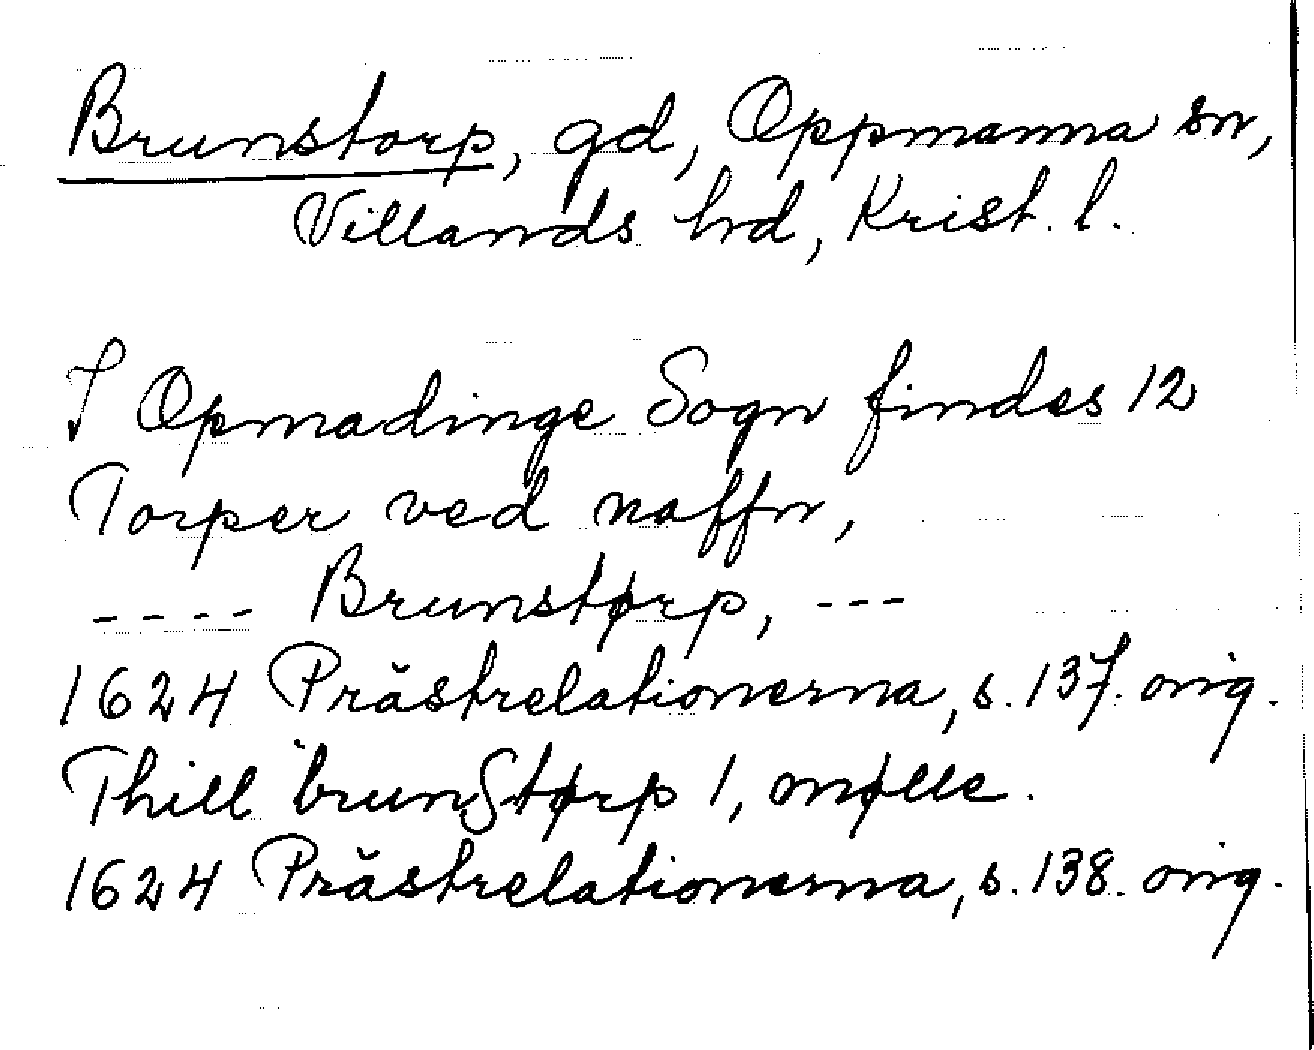 Brunstorp, gd, Oppmanna sn,
Villands hd, Krist. l.
I Opmadinge Sogn findes 12
Torper ved naffn,
---- Brunstørp, ---
1624 Prästrelationerna, s. 137. orig.
Thill brunStørp 1, mølle.
1624 Prästrelationerna, s. 138. orig.